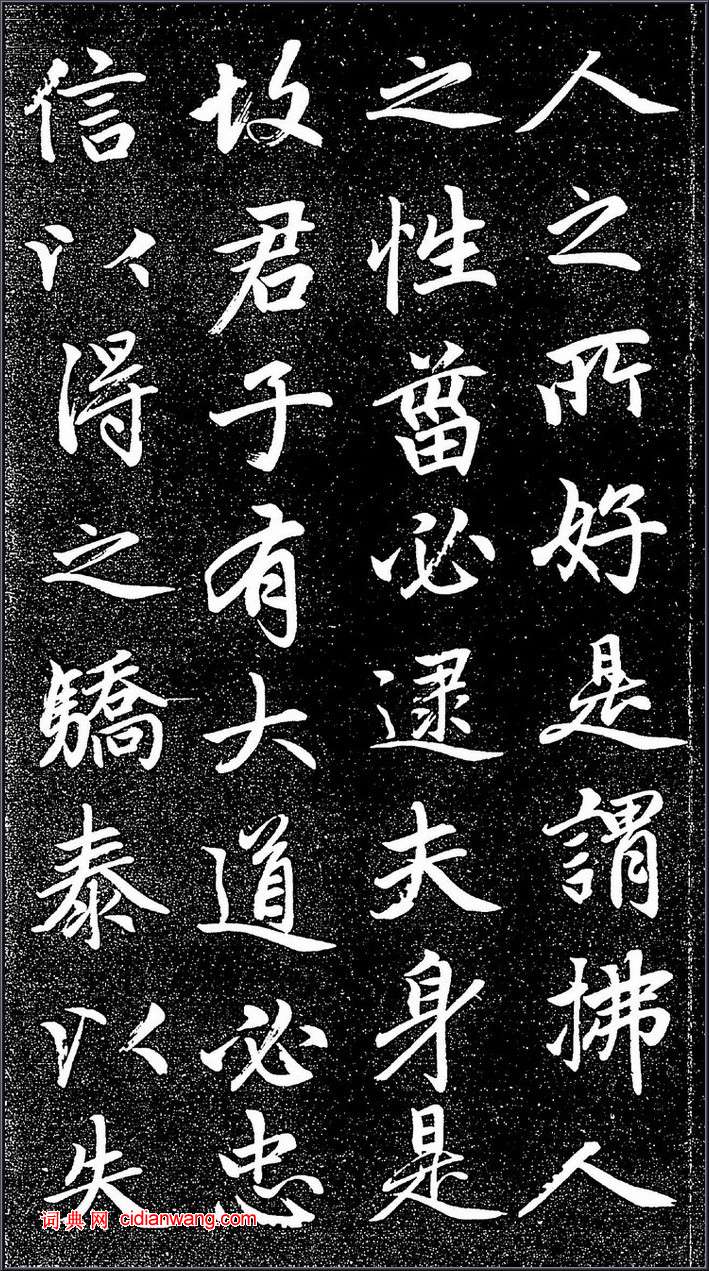 人之所好是謂拂人
之性菑必逮夫身是
故君子有大道必忠
信以得之驕泰以失
词典网 cidianwang.com